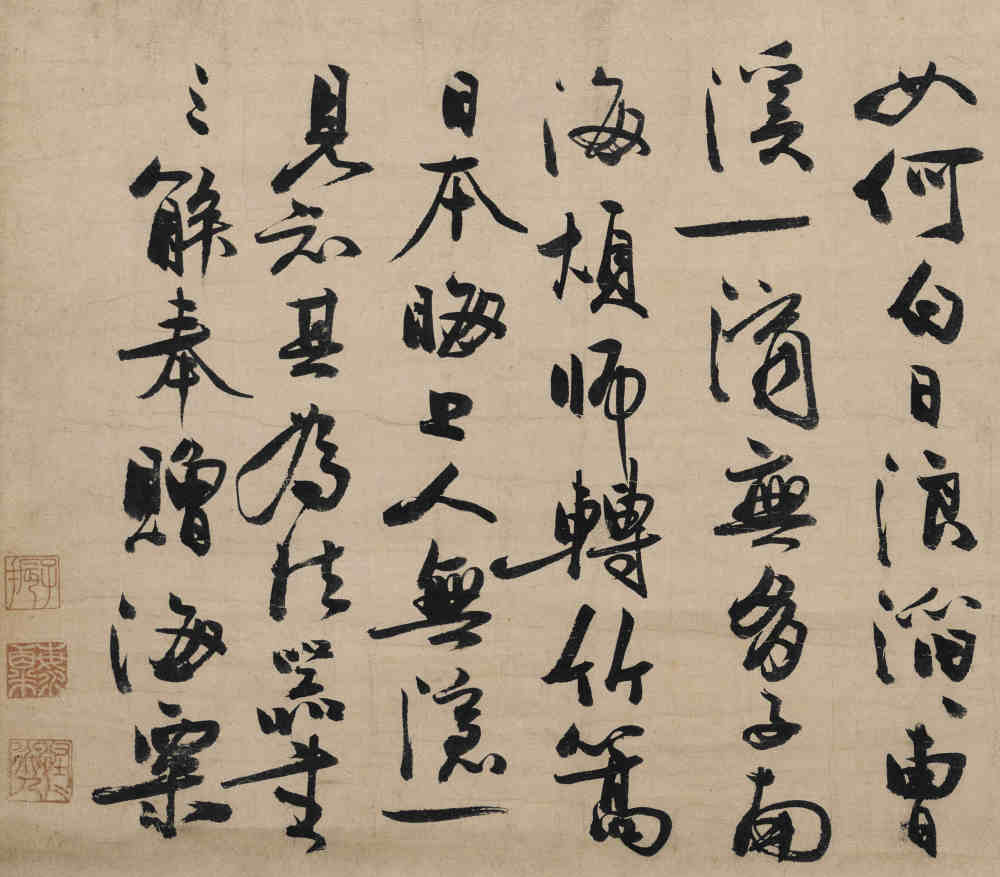 如何白日浪滔〻曹
溪一滴無多子南
海煩師轉竹篙
日本晦上人無隱一
見知其為法器書
三解奉贈海粟